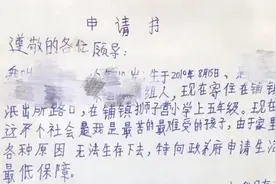 申请书
尊敬的各位领导：
生于2010年8月5日，
组人，现在寄住在铺镇
派出所路口，在铺镇狮子营小学上五年级。现在
这个社会是我是最苦的最难受的孩子，由于家里
各种原因 无法生存下去，特向政府申请生活
最低保障。